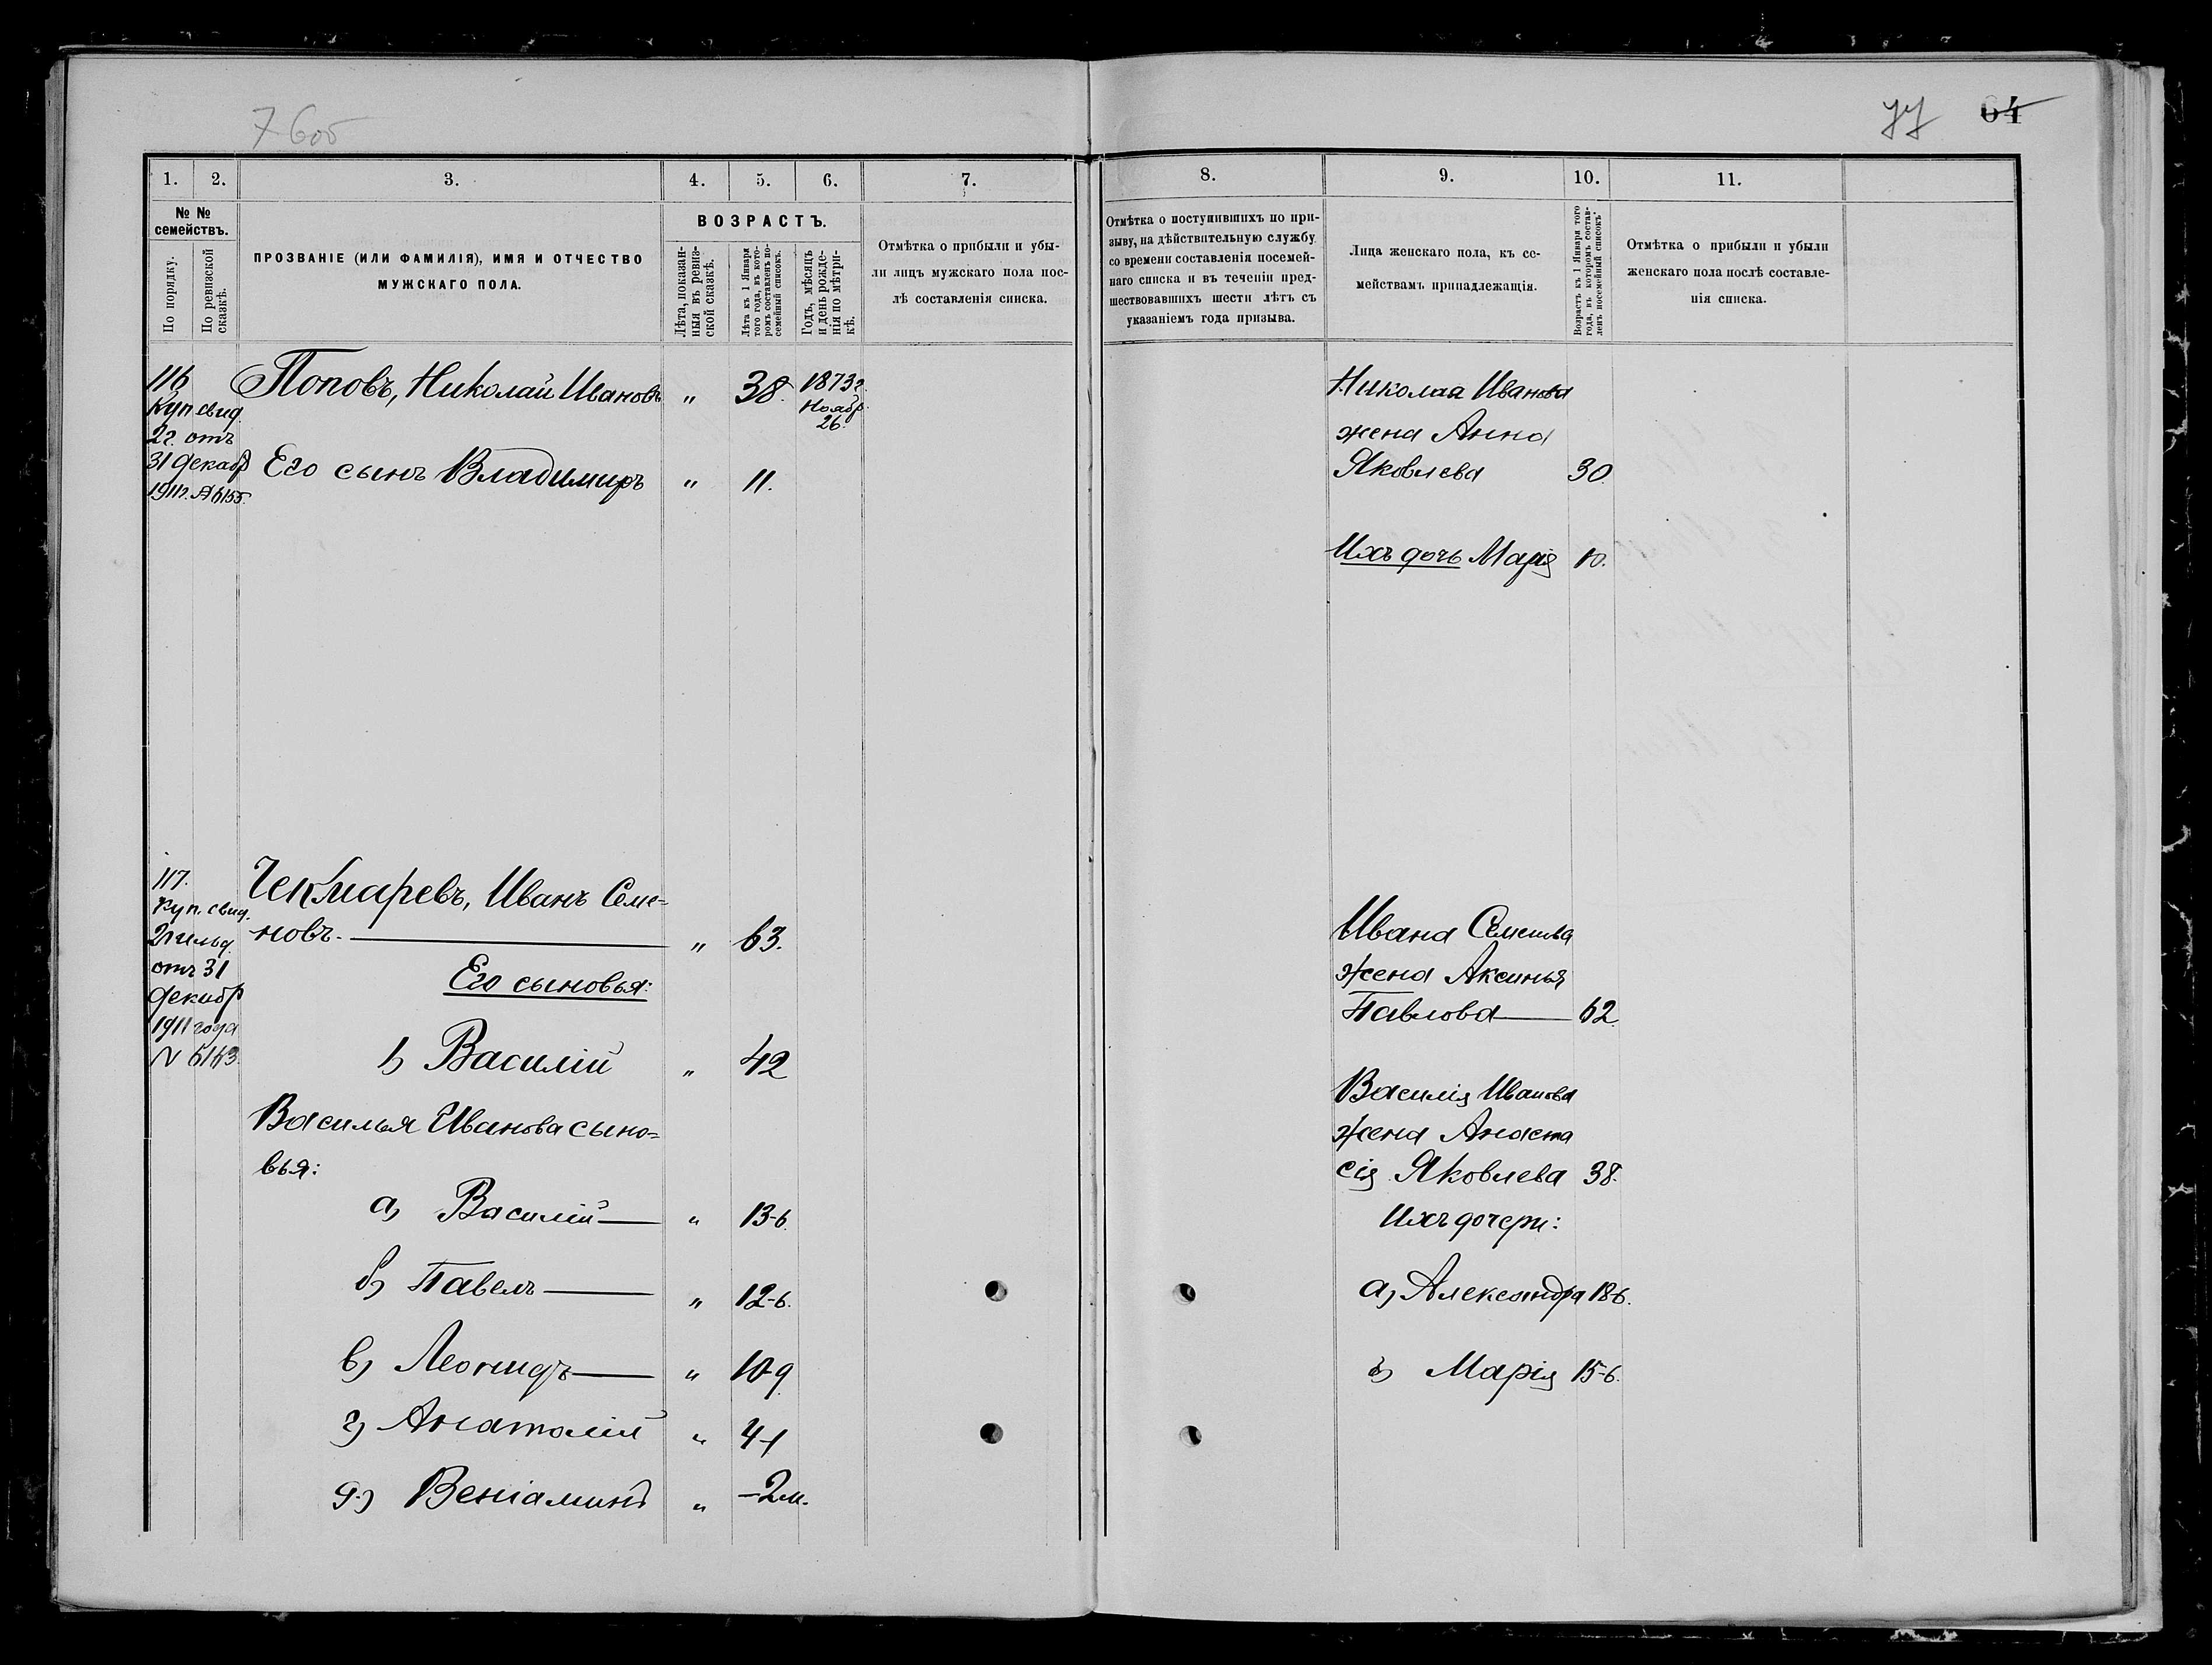 76об
77 64
1. 2. 3. 4. 5. 6. 7.
№ № семействъ.
По порядку.
По ревизской сказкѣ.
ПРОЗВАНІЕ (ИЛИ ФАМИЛІЯ), ИМЯ И ОТЧЕСТВО
МУЖСКАГО ПОЛА.
ВОЗРАСТЪ.
Лѣта, показан-
ныя въ ревиз-
ской сказкѣ.
Лѣта къ 1 Января
того года, въ кото-
ромъ составленъ по-
семейный списокъ.
Годъ, мѣсяцъ
и день рожде-
нія по мѣтри-
кѣ.
Отмѣтка о прибыли и убы-
ли лицъ мужскаго пола пос-
лѣ составленія списка.
116
Куп свид.
2г. отъ
31 декабр
1911г. № 6155.
Поповъ, Николай Ивановъ " 38. 1873г.
Ноябр.
26.
Его сынъ Владимиръ " 11.
117.
Куп. свид.
2 гильд.
отъ 31
декабр
1911 года
N 6163.
Чекмаревъ, Иванъ Семе=
новъ. " 63.
Его сыновья:
1) Василій " 42
Василья Иванова сыно=
вья:
а) Василій " 13-6.
б) Павелъ " 12-6.
в) Леонидъ " 10-9.
г) Анатолій " 4-1
д) Веніаминъ " -2м.
8. 9. 10. 11.
Отмѣтка о поступившихъ по при-
зыву, на дѣйствительную службу
со времени составленія посемей-
наго списка и въ теченіи пред-
шествовавшихъ шести лѣтъ съ
указаніемъ года призыва.
Лица женскаго пола, къ се-
мействамъ принадлежащія.
Возрастъ къ 1 Января того
года, въ которомъ состав-
ленъ посемейный списокъ
Отмѣтка о прибыли и убыли
женскаго пола послѣ составле-
нія списка.
Николая Иванова
жена Анна
Яковлева 30.
Ихъ дочь Марія 10.
Ивана Семенова
жена Аксинья
Павлова 62.
Василія Иванова
жена Анаста
сія Яковлева 38.
Ихъ дочери:
а) Александра 18-6.
б) Марія 15-6.